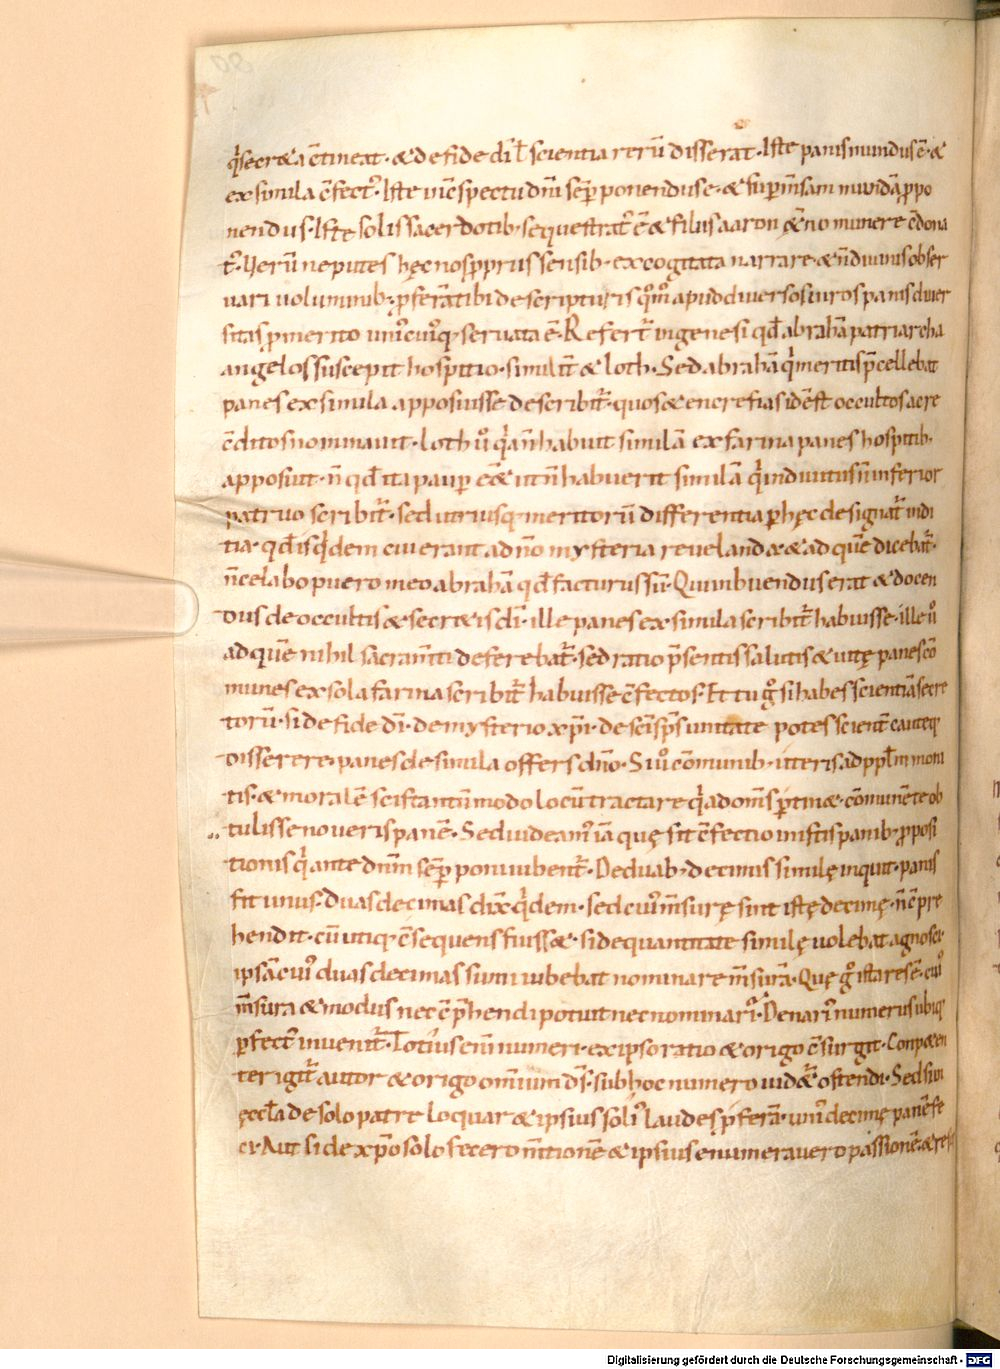 q̓ secr&a c̄tineat · & de fide dī ł scientia rerū disserat · Iste panis mundus ē · &
ex simila c̄fect᷒ · Iste in c̄spectu dnī sēp ponendus ē · & sup m̄sam mundā ꝓpo
nendus · Iste solis sacerdotib· sequestrat᷒ ē & filiis aaron &̄no munere c̄dona
t᷒ · Uerū ne putes hęc nos ꝓprus sensib· excogitata narrare · & n̄ diuinis obser
uari uoluminib· ꝓferā tibi de scripturis qm̊ apud diuersos uiros panis diuer
sitas ꝓ merito uni᷒cui᷒q· seruata ē · Refert᷒ in genesi qd̄ abrahā patriarcha
angelos suscepit hospitio · simulit̄ & loth · Sed abrahā q̓ meritis p̄cellebat
panes ex simila apposuisse describit᷒ · quos & encrefias id ēst occultos ac re
c̄ditos nominauit · loth u̓ q̓a n̄ habuit similā ex farina panes hospitib·
apposuit · n̄ qd̄ ita paup eēt & ut n̄ habuerit similā q̓ in diuitiis n̄ inferior
patruo scribit᷒ · sed utriusq· meritorū differentia p hęc designat᷒ indi
tia · qd̄ is q̓dem cui erant ad nō mysteria reuelanda & ad quē dicebat᷒ ·
n̄ celabo puero meo abrahā qd̄ facturus sū · Qui inbuendus erat & docen
dus de occultis & secr&is dī · ille panes ex simila scribit᷒ habuisse · ille u̓
ad quē nihil sacram̄ti deferebat᷒ · sed ratio p̄sentis salutis & uitę panes cō
munes ex sola farina scribit᷒ habuisse c̄fectos · Et tu g̊ si habes scientiā secre
torū · si de fide dī · de mysterio xp̄i · de scī sp̄s unitate potes scient̄ cauteq·
disserere · panes de simila offers dn̄o · Si u̓ cōmunib· uteris ad pplm̄ moni
tis · & moralē scis tantūmodo locū tractare q̓ ad om̄s ptin& · cōmunē te ob
tulisse noueris panē · Sed uideam᷒ iā quę sit c̄fectio in istis panib· ꝓposi
tionis q̓ ante dnm̄ sēp poni iubent᷒ · De duab· decimis similę inquit · panis
fit unus · duas decimas dix̄ q̓dem · sed cui᷒ m̄surę sint istę decimę · n̄ c̄pre
hendit · cū utiq· c̄sequens fuiss& · si de quantitate similę uolebat agnosci ·
ipsā cui᷒ duas decimas sumi iubebat nominare m̄surā · Quę g̊ ista res ē · cui᷒
m̄sura & modus nec c̄p̄hendi potuit nec nominari · Denari᷒ numerus ubiq·
pfect᷒ inuenit᷒ · Toti᷒ us enī numeri · ex ipso ratio & origo c̄surgit · Conpet̄en
ter igit᷒ autor & origo omnium d̄s · sub hoc numero uid&᷒ ostendi · Sed si in
ęccła de solo patre loquar & ipsius soli᷒ laudes pferā · uni᷒ decimę panē fe
ci · Aut si de xp̄o solo fecero m̄tionē & ipsius enumerauero passionē · & res
Digitalisierung gefördert durch die Deutsche Forschungsgemeinschaft - DFG